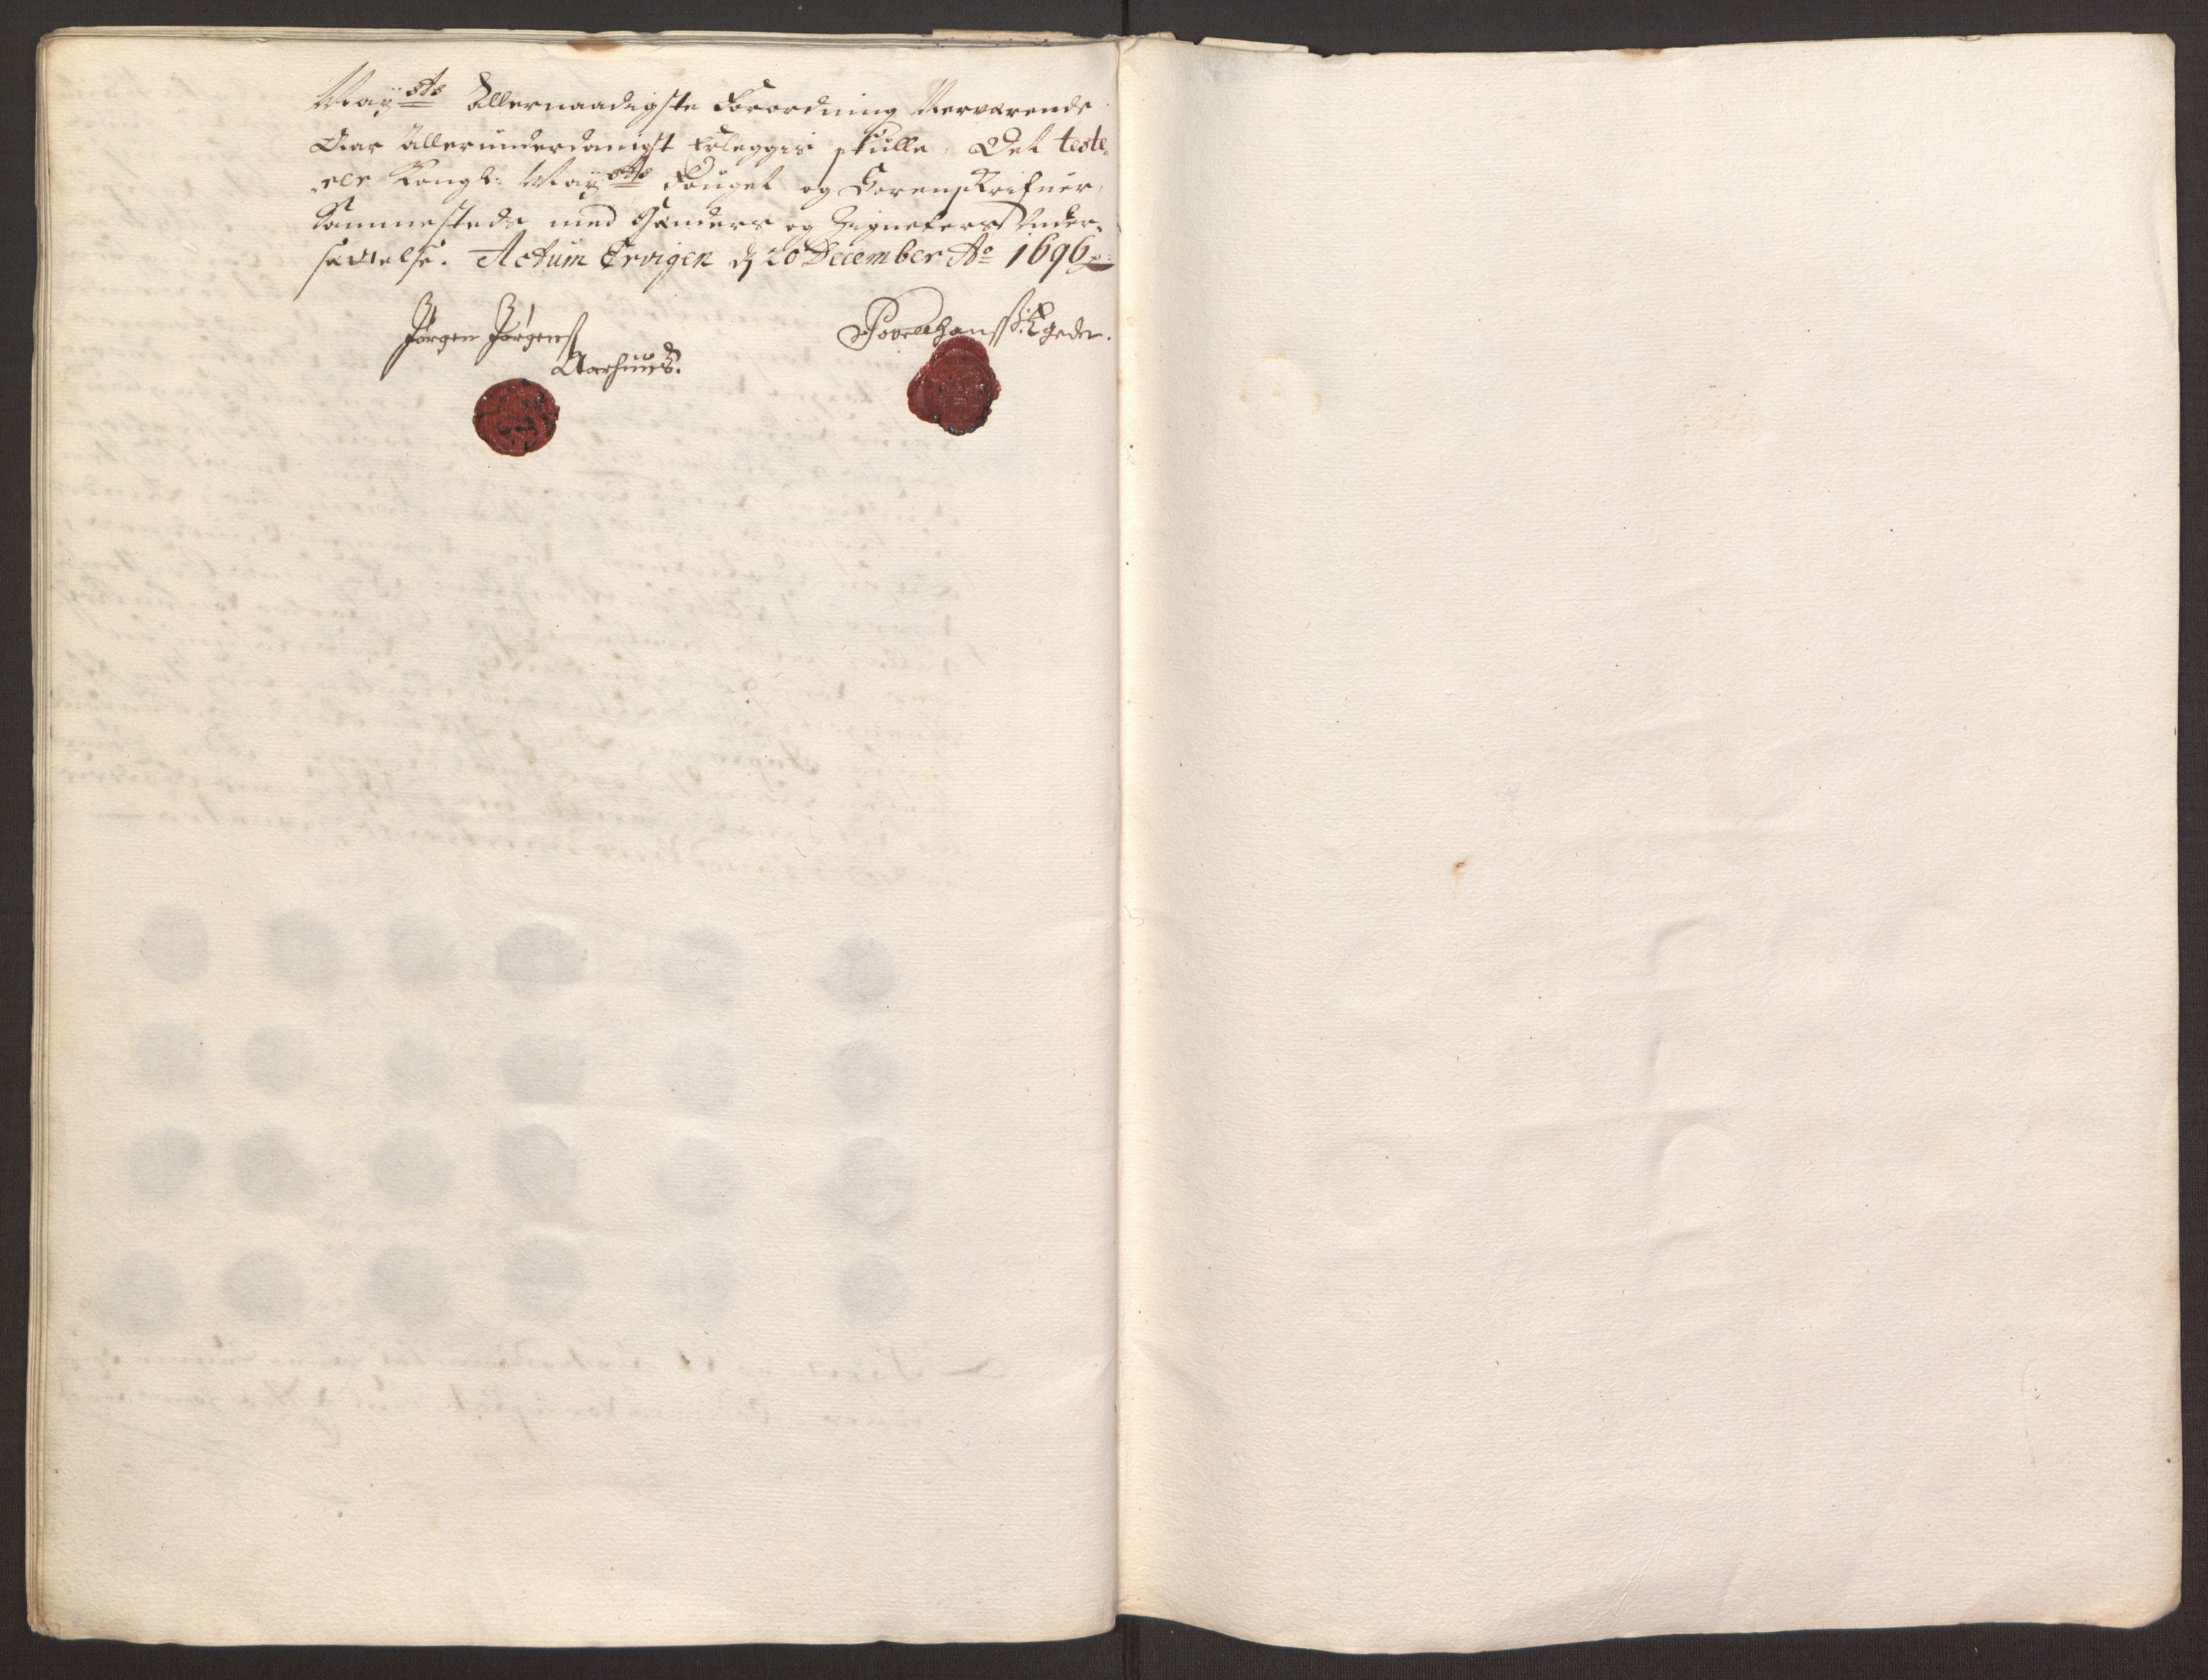 Maÿ:sts Allernaadigste Forordning Nerværende
Aar Allerunderdanigst Erleggis skulle. Det teste-
rer Kongl: Maÿ:sts Fouget og Sorenskrifuer,
Sammesteds med Hænders og Zigneters Under-
sættelse. Actum Ervigen d 20 December Ao 1696
Jørgen Jørgens
Aarhuus.
Povel Hanss: Egede.